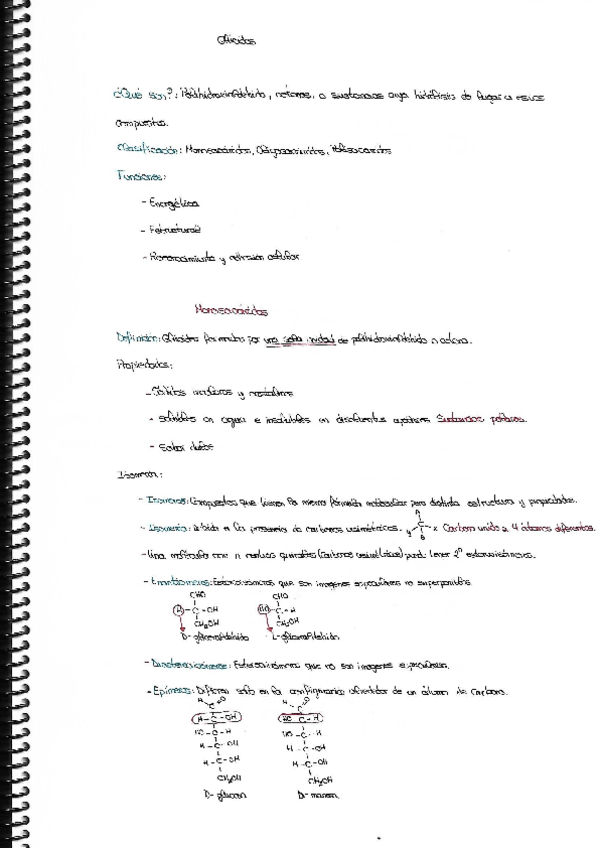 Glúcidos
¿Qué son?: Polihidroxialdehído, cetonas, o sustancias cuya hidrólisis da lugar a estos
compuestos.
Clasificación: Monosacáridos, Oligosacáridos, Polisacáridos
Funciones:
- Energética
- Estructural
- Reconocimiento y adhesión celular
Monosacáridos
Definición: Glúcidos formados por una sola unidad de polihidroxialdehído o cetona.
Propiedades:
- Sólidos incoloros y cristalinos
- solubles en agua e insolubles en disolventes apolares Sustancias polares.
- Sabor dulce
Isomería:
- Isómeros: Compuestos que tienen la misma fórmula molecular pero distinta estructura y propiedades.
- Isomería: debida a la presencia de carbonos asimétricos. y-C-x Carbono unido a 4 átomos diferentes.
- Una molécula con n centros quirales (carbonos asimétricos) puede tener 2ⁿ estereoisómeros.
- Enantiómeros: Estereoisómeros que son imágenes especulares no superponibles
CHO CHO
H-C-OH HO-C-H
CH₂OH CH₂OH
D-gliceraldehído L-gliceraldehído
- Diastereoisómeros: Estereoisómeros que no son imágenes especulares.
- Epímeros: Difieren sólo en la configuración alrededor de un átomo de carbono.
H C O H C O
H-C-OH HO-C-H
HO-C-H HO-C-H
H-C-OH H-C-OH
H-C-OH H-C-OH
CH₂OH CH₂OH
D-glucosa D-manosa